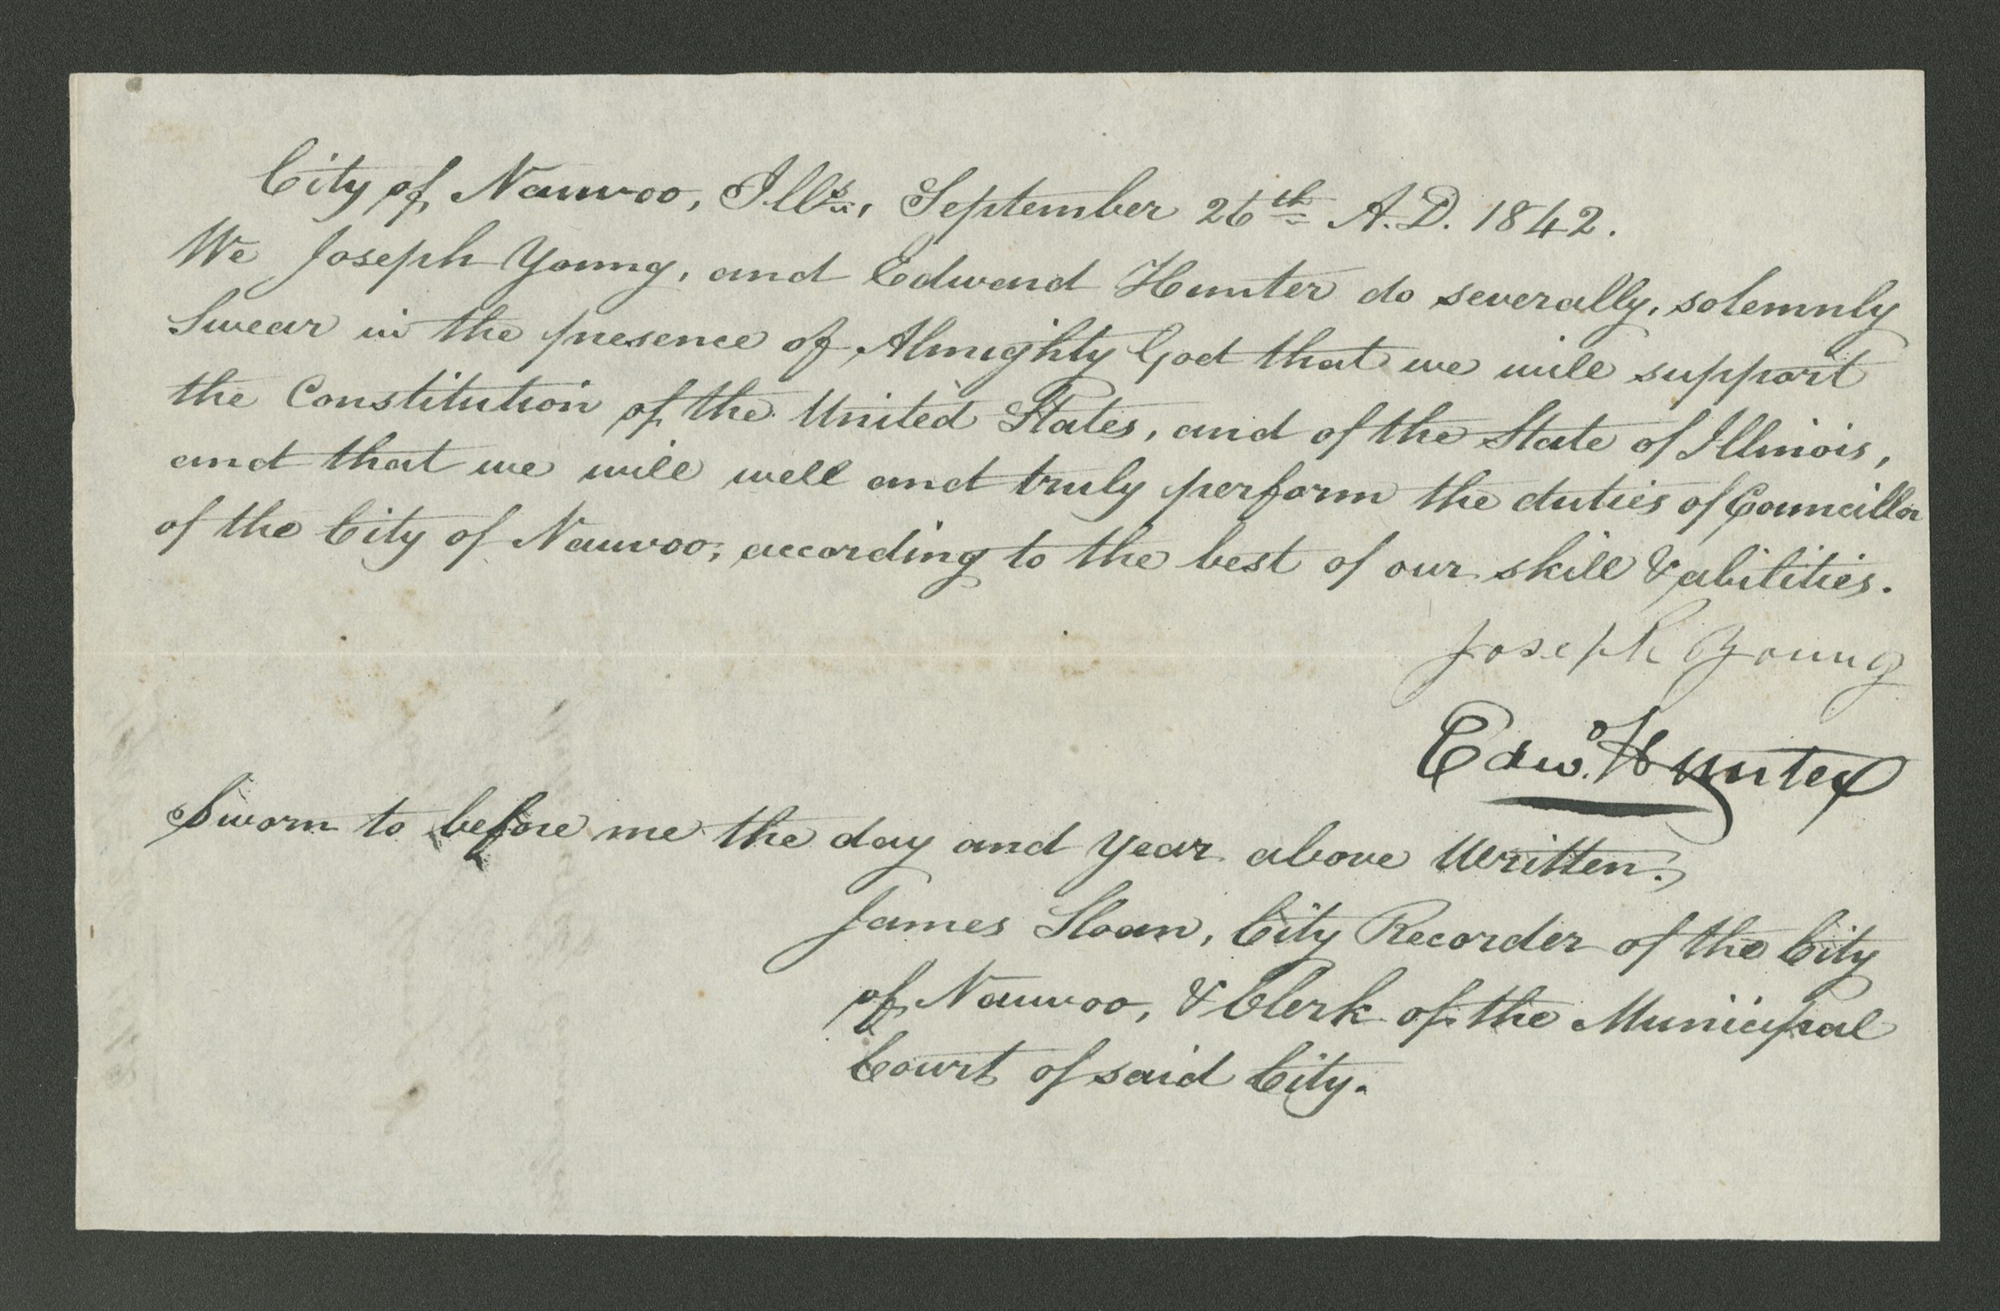 City of Nauvoo, Ills., September 26th A.D. 1842.
We Joseph Young, and Edward Hunter do severally, solemnly
Swear in the presence of Almighty God that we will support
the Constitution of the United States, and of the State of Illinois,
and that we will well and truly perform the duties of Councillor
of the City of Nauvoo, according to the best of our skill & abilities.
Joseph Young
Edwd. Hunter
Sworn to before me the day and year above written.
James Sloan, City Recorder of the City
of Nauvoo, & Clerk of the Municipal
Court of said City.